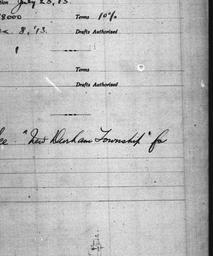 July 25, 13.
8000 Terms 10%
8, '13. Drafts Authorized
1
Terms
Drafts Authorized
"New Durham Township" fo